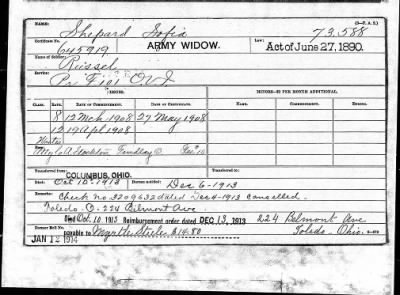 (3-P.A.G.)
Shepard Sofia 73,588
Certificate No. Name: Law:
645919 ARMY WIDOW. Act of June 27, 1890.
Name of Soldier:
Russel
Service:
Pr F 101 O.V.I.
ISSUES. MINORS—$2 PER MONTH ADDITIONAL.
CLASS. RATE. DATE OF COMMENCEMENT. DATE OF CERTIFICATE. NAME. COMMENCED. ENDED.
8 12 Mch 1908 27 May 1908
12 19 Apl 1908
A Findlay O.
Transferred from COLUMBUS, OHIO.
Died: Oct 10-1913 Bureau notified: Dec 6-1913
Remarks: Check no. 3209632 dated Dec 4-1913 cancelled.
Toledo O-224 Belmont Ave.
Died Oct. 10, 1913 Reimbursement order dated DEC 13, 1913 224 Belmont Ave
Former Roll No. payable to Myrtle Steele $14.80 Toledo-Ohio.
JAN 12 1914